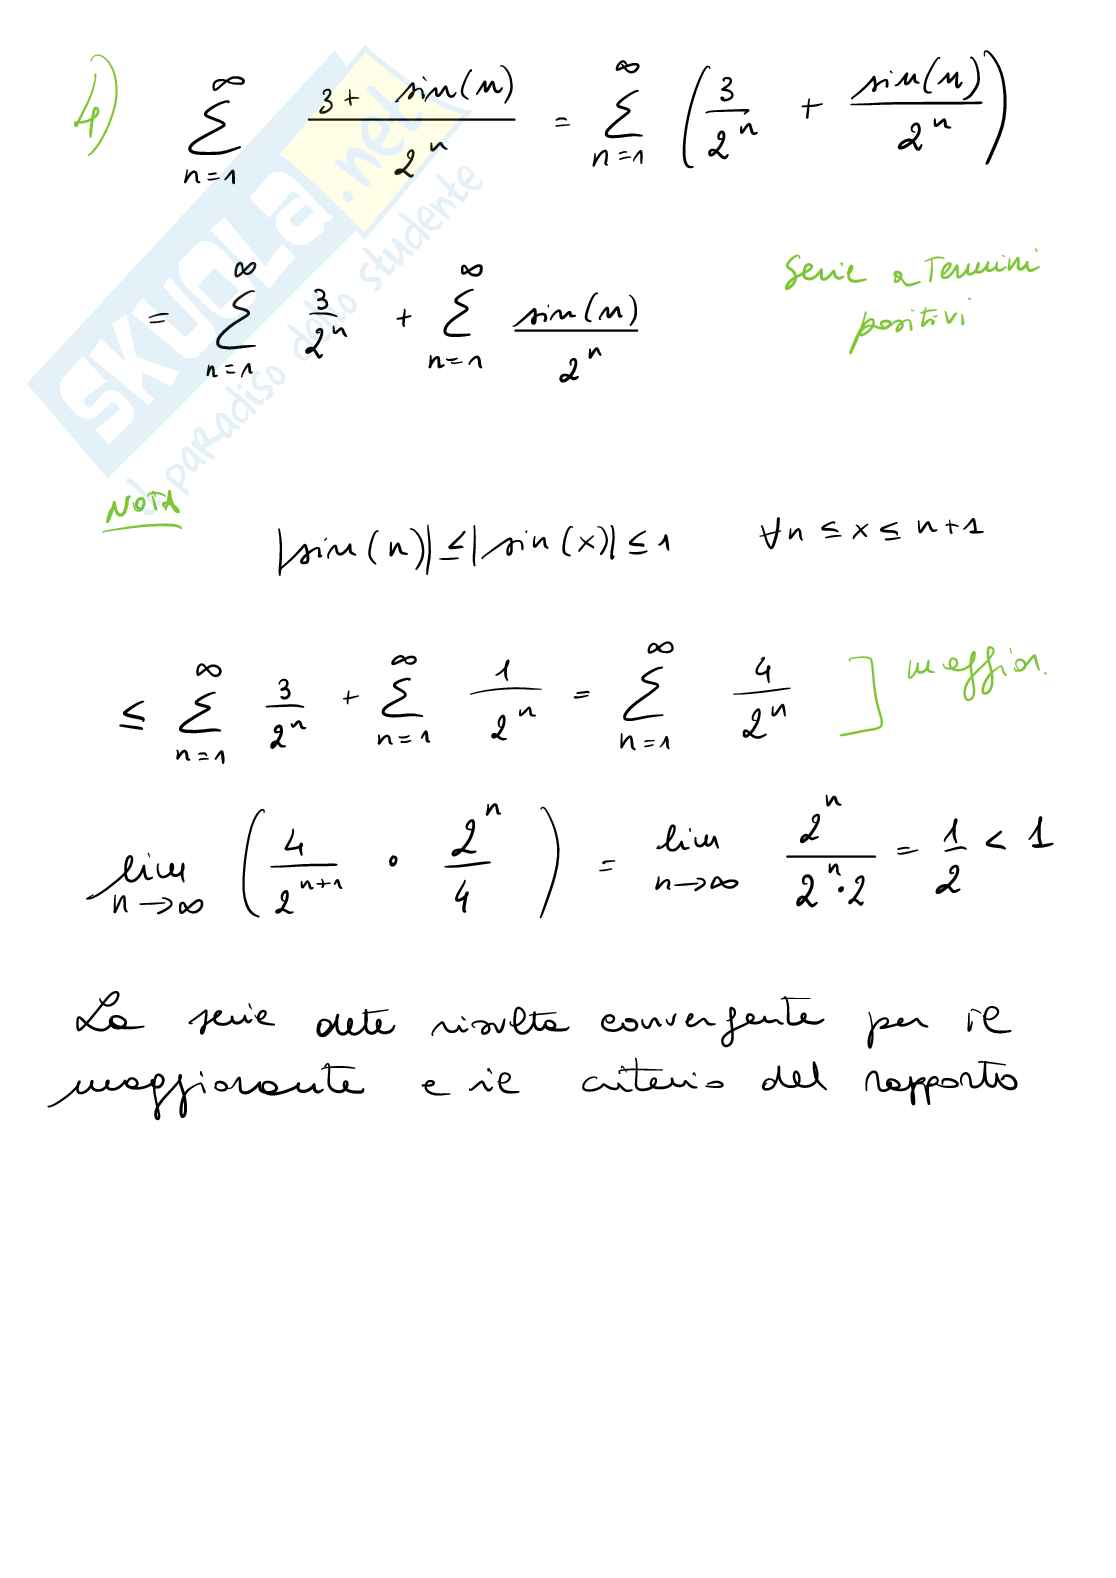 4) ∞∑n=1 3 + sin(n) / 2^n = ∞∑n=1 (3/2^n + sin(n)/2^n)
= ∞∑n=1 3/2^n + ∞∑n=1 sin(n)/2^n serie a Termini
positivi
NOTA
|sin(n)| ≤ |sin(x)| ≤ 1 ∀n ≤ x ≤ n+1
≤ ∞∑n=1 3/2^n + ∞∑n=1 1/2^n = ∞∑n=1 4/2^n ] maggior.
lim n→∞ (4/2^(n+1) · 2^n/4) = lim n→∞ 2^n/(2^n·2) = 1/2 < 1
La serie data risulta convergente per il
maggiorante e il criterio del rapporto
SKUOLA.net
il paradiso dello studente